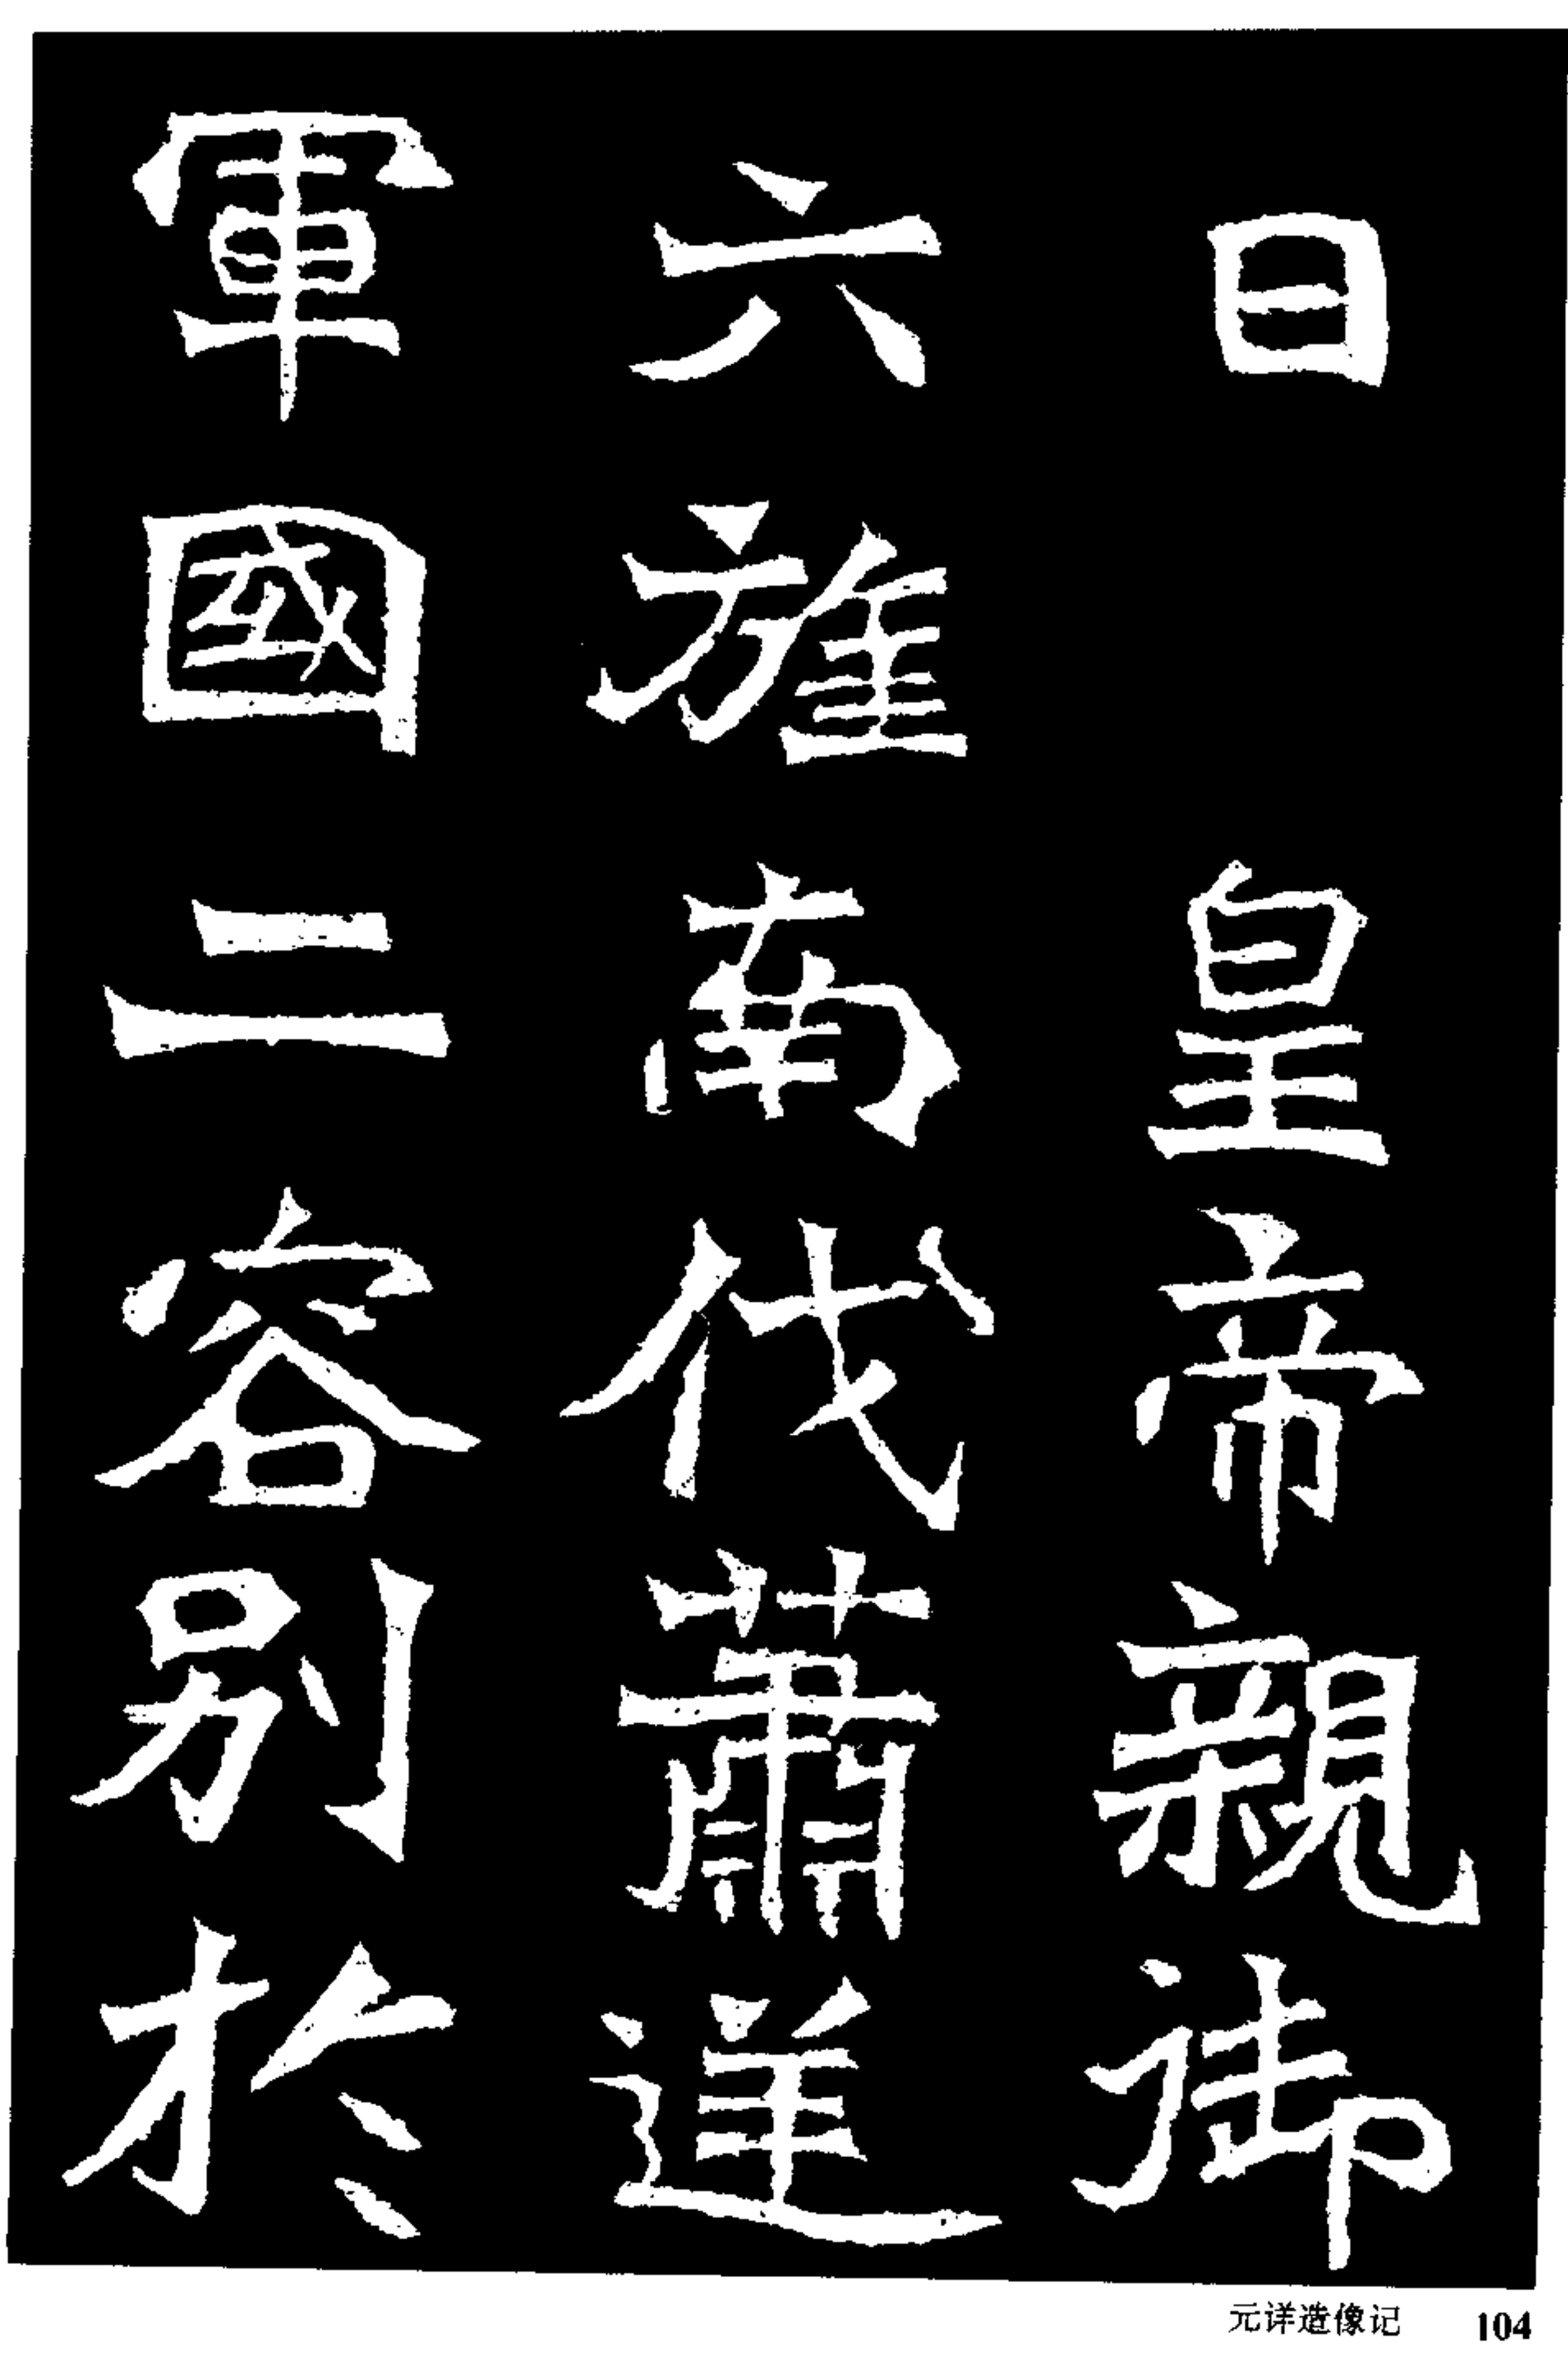 日皇帝親御
六旌南伐蕭逆
軍國二容別於
元详造像记 104